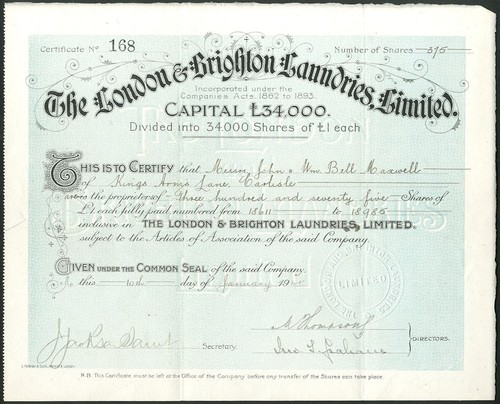 Certificate No 168 Number of Shares 375
The London & Brighton Laundries, Limited.
Incorporated under the
Companies Acts, 1862 to 1893.
CAPITAL £34,000.
Divided into 34,000 Shares of £1 each
THIS IS TO CERTIFY that Messrs John & Wm Bell Maxwell
of Kings Arms Lane, Carlisle
the proprietors of Three hundred and seventy five Shares of
£1 each fully paid, numbered from 18611 to 18985
inclusive in THE LONDON & BRIGHTON LAUNDRIES, LIMITED,
subject to the Articles of Association of the said Company.
GIVEN UNDER THE COMMON SEAL of the said Company.
this 10th day of January 19
LIMITED
Secretary.
DIRECTORS.
N.B. This Certificate must be left at the Office of the Company before any transfer of the Shares can take place.